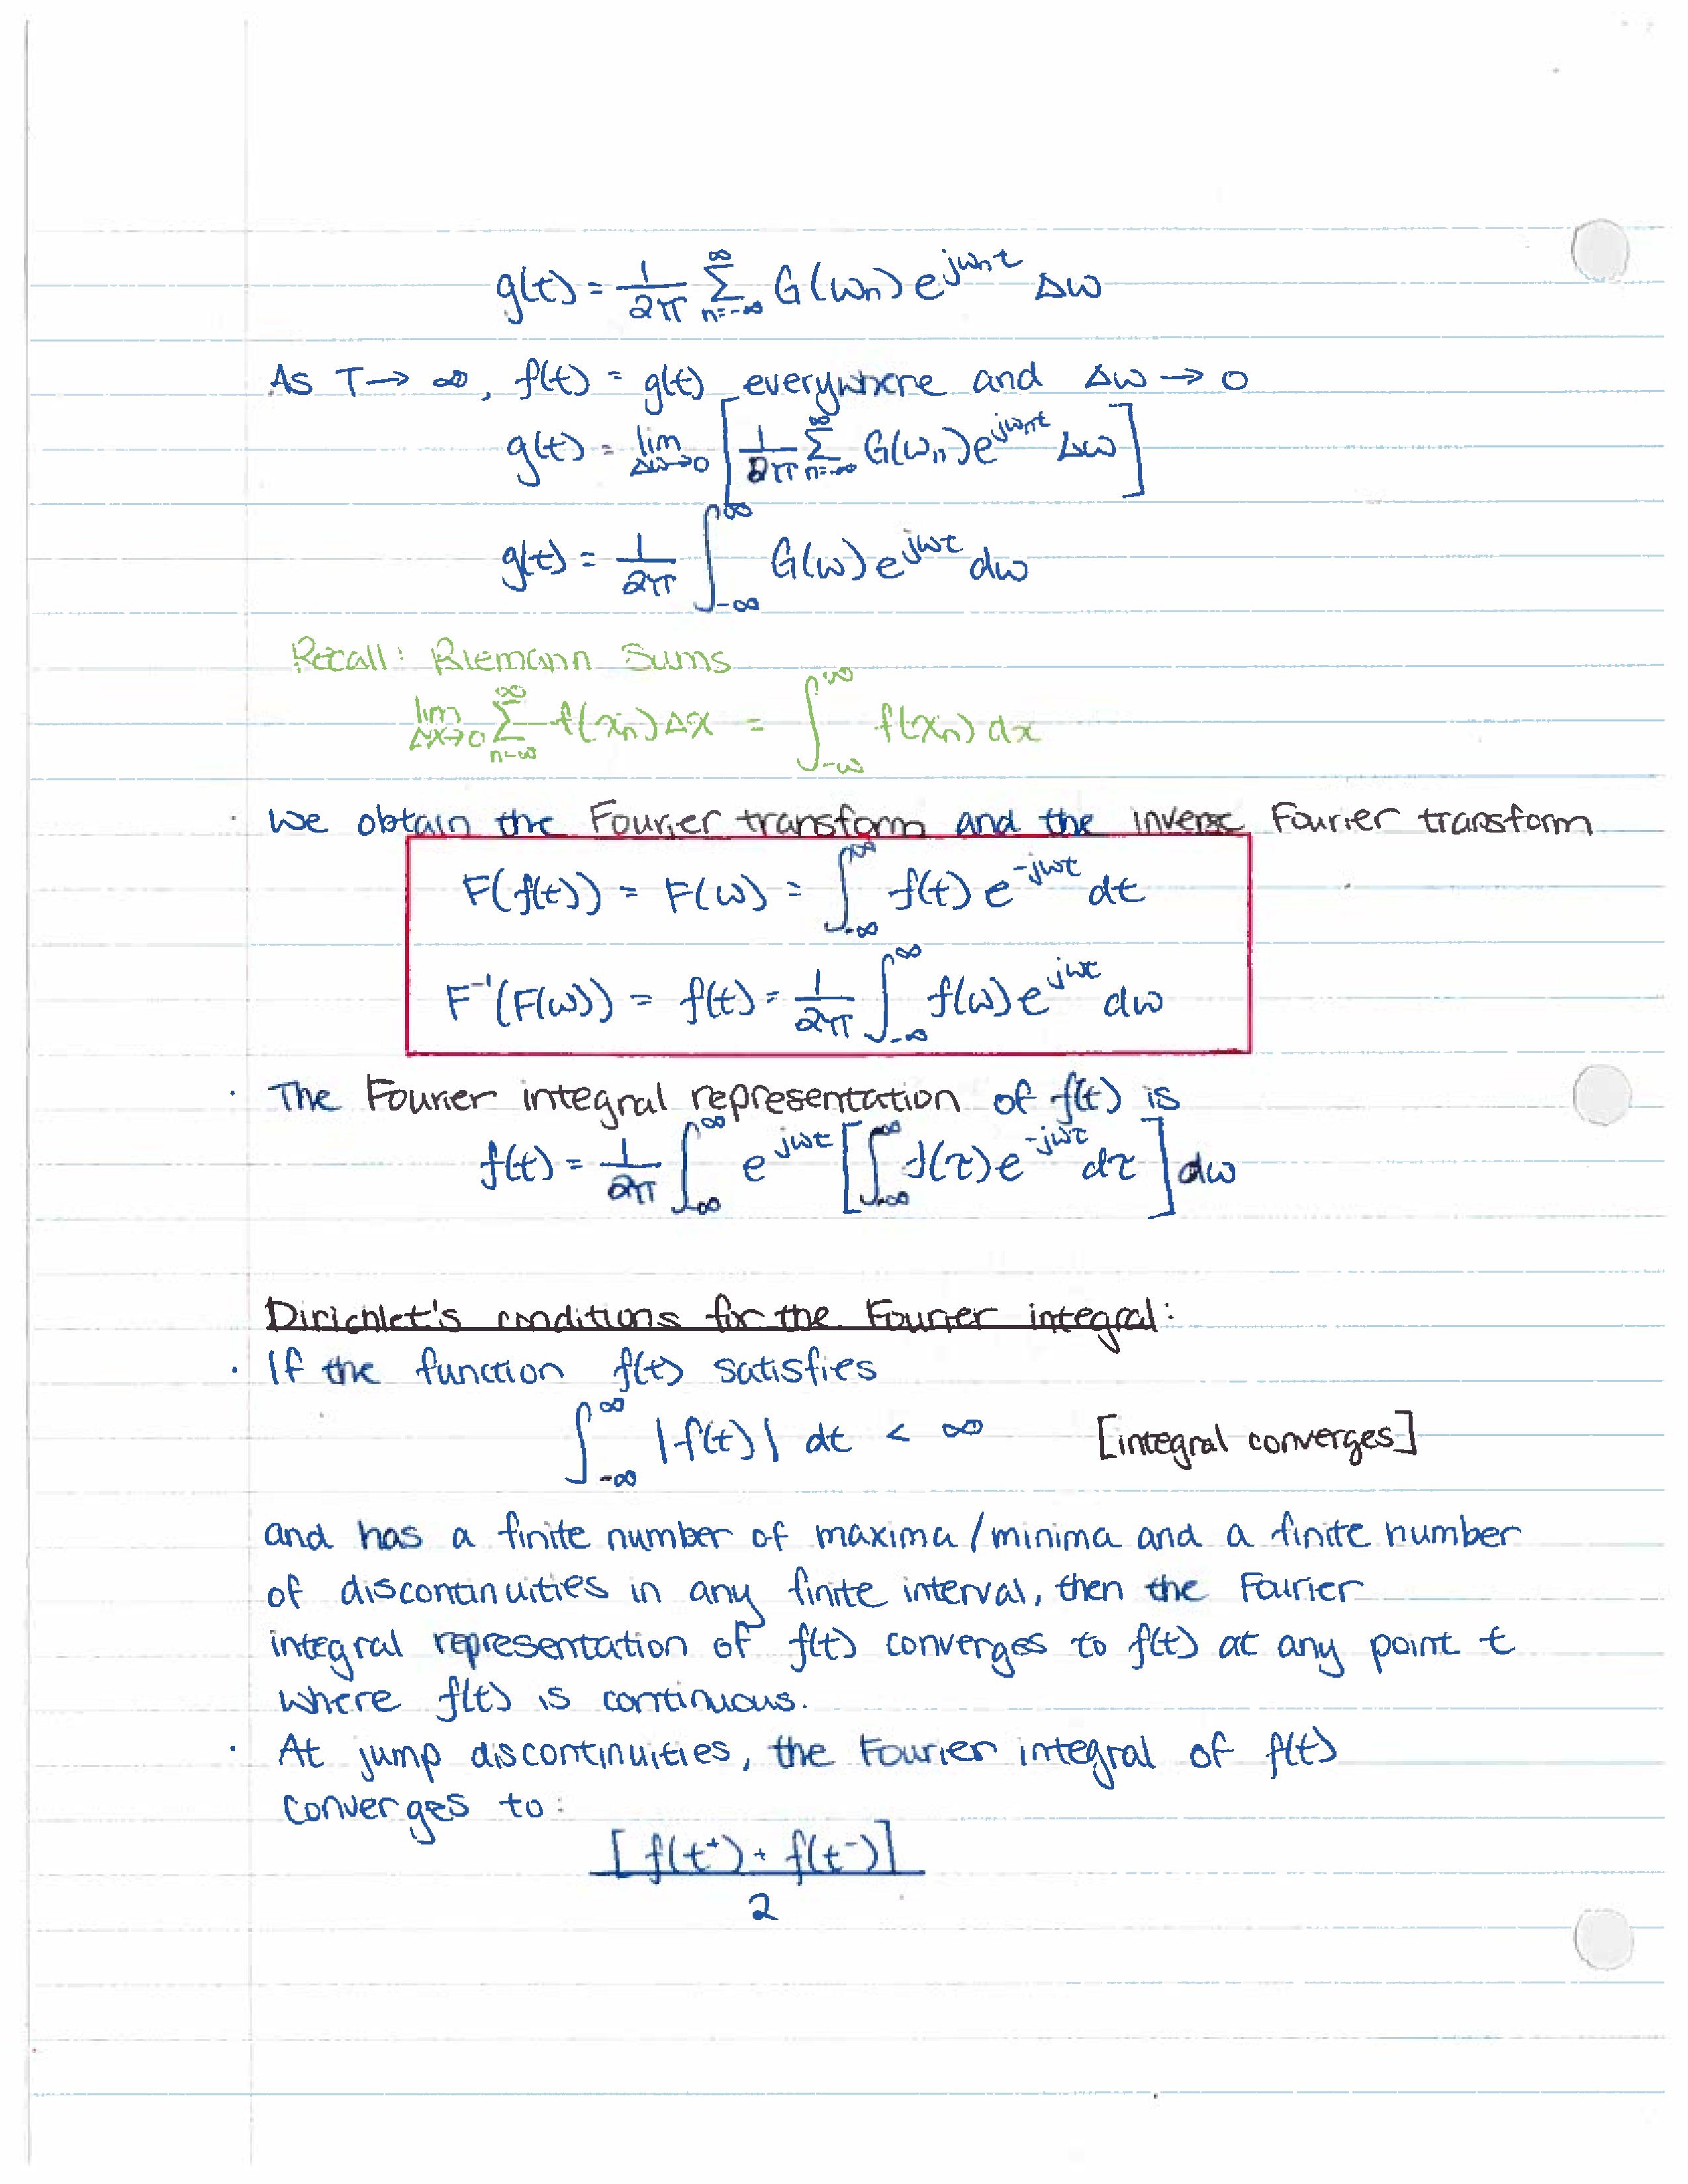 g(t) = 1/2π Σ_{n=-∞}^{∞} G(ωn) e^{jωnt} Δω
As T → ∞, f(t) = g(t) everywhere and Δω → 0
g(t) = lim_{Δω→0} [1/2π Σ_{n=-∞}^{∞} G(ωn) e^{jωnt} Δω]
g(t) = 1/2π ∫_{-∞}^{∞} G(ω) e^{jωt} dω
Recall: Riemann Sums
lim_{Δx→0} Σ_{n=-∞}^{∞} f(xn) Δx = ∫_{-∞}^{∞} f(xn) dx
· We obtain the Fourier transform and the inverse Fourier transform
F(f(t)) = F(ω) = ∫_{-∞}^{∞} f(t) e^{-jωt} dt
F⁻¹(F(ω)) = f(t) = 1/2π ∫_{-∞}^{∞} f(ω) e^{jωt} dω
· The Fourier integral representation of f(t) is
f(t) = 1/2π ∫_{-∞}^{∞} e^{jωt} [∫_{-∞}^{∞} f(τ) e^{-jωτ} dτ] dω
Dirichlet's conditions for the Fourier integral:
· If the function f(t) satisfies
∫_{-∞}^{∞} |f(t)| dt < ∞ [integral converges]
and has a finite number of maxima/minima and a finite number
of discontinuities in any finite interval, then the Fourier
integral representation of f(t) converges to f(t) at any point t
where f(t) is continuous.
· At jump discontinuities, the Fourier integral of f(t)
converges to:
[f(t⁺) + f(t⁻)]
2